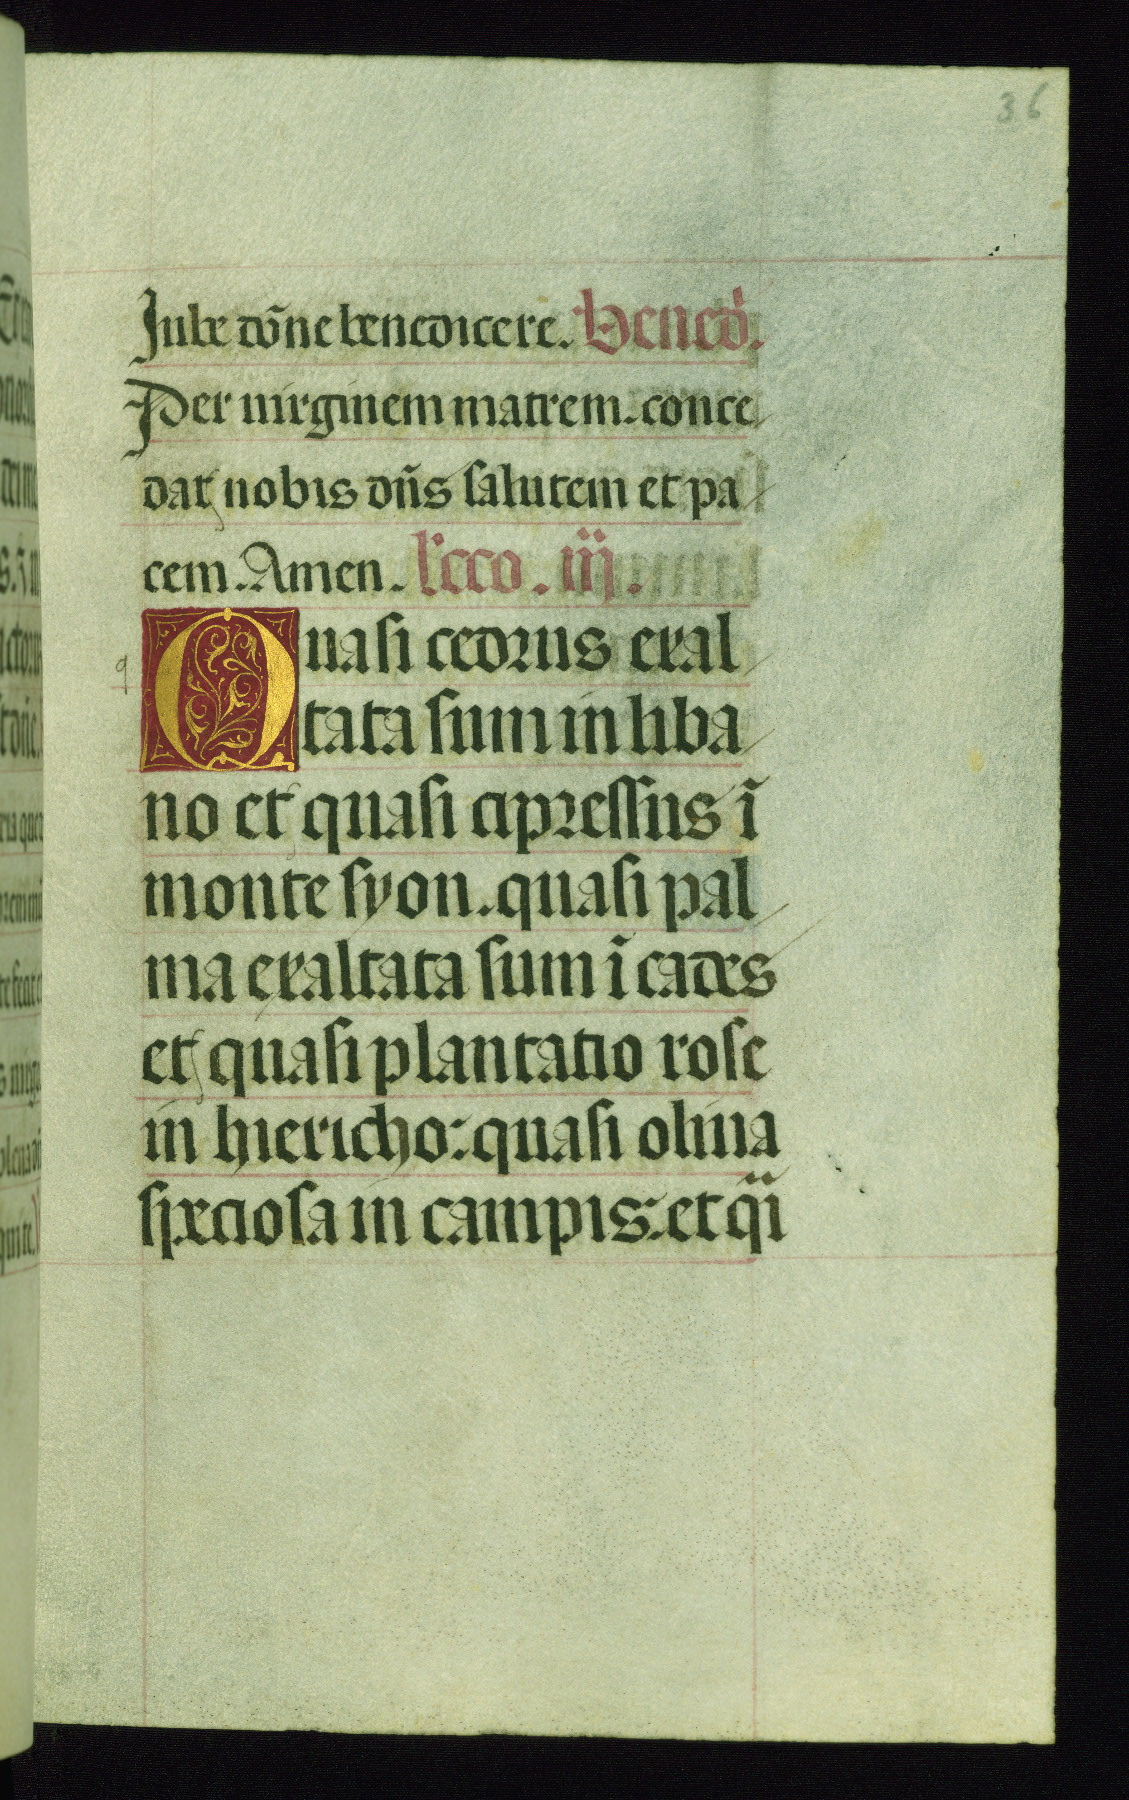 36
Iube dōne benedicere. Bened̓.
Per uirginem matrem. conce
dat nobis dn̄s salutem et pa
cem. Amen. lc̄cō. iij.
q
Quasi cedrus exal
tata sum in liba
no et quasi cipressus ī
monte syon. quasi pal
ma exaltata sum ī cades
et quasi plantatio rose
in hiericho: quasi oliua
speciosa in campis: et qͥi